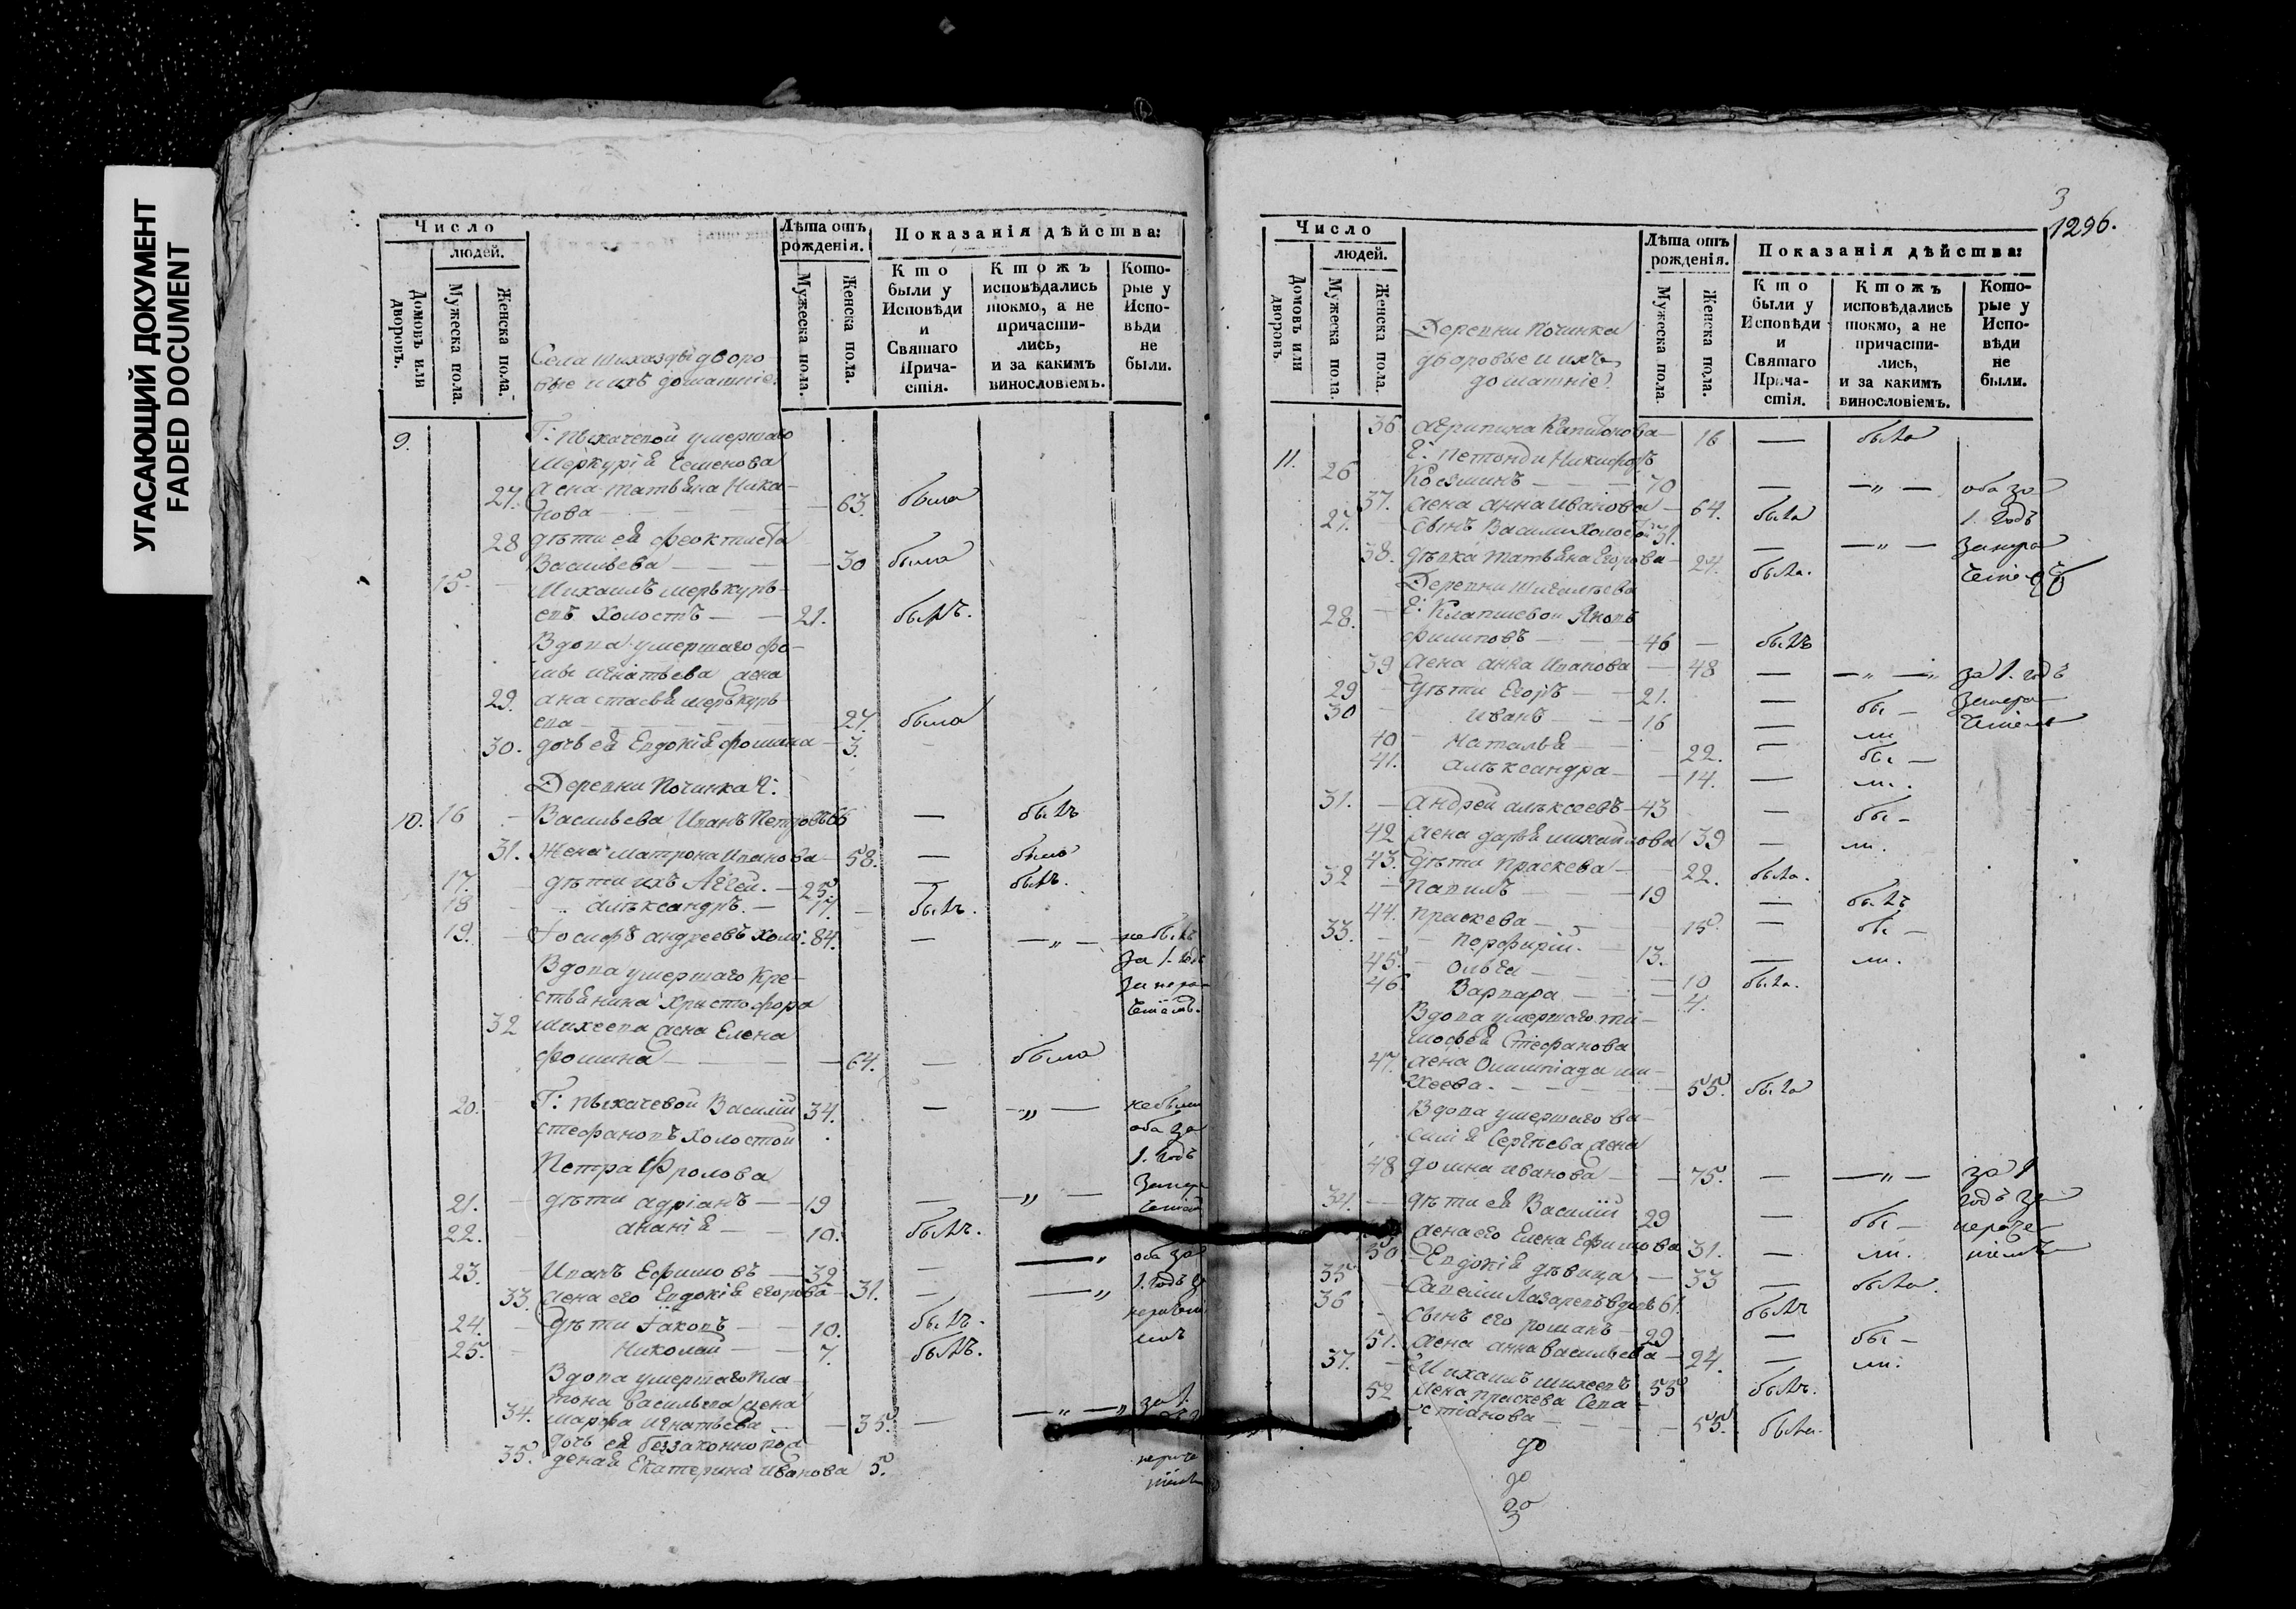 УГАСАЮЩИЙ ДОКУМЕНТ
FADED DOCUMENT
Число
людей.
Домовъ или дворовъ.
Мужеска пола.
Женска пола.
Села Шихозды дворо-
вые и ихъ домашніе.
Лѣта отъ рожденія.
Мужеска пола.
Женска пола.
Показанія дѣйства:
Кто были у Исповѣди и Святаго Прича-стія.
Ктожъ исповѣдались токмо, а не причасти-лись, и за какимъ винословіемъ.
Кото-рые у Испо-вѣди не были.
9. Г: Пыхачевой умершаго
Меркурія Семенова
27. жена Татьяна Ника-
нова — 63. была
28 дѣти ея Феоктиста
Васильева — 30 была
15. Михаилъ Меркурь-
евъ холостъ — 21. былъ.
Вдова умершаго Фо-
мы Игнатьева жена
29. Анастасья Меркурь-
ева — 27. была
30. дочь ея Евдокія Фомина — 3.
Деревни Починка Г:
10. 16 Васильева Иванъ Петровъ 66 — былъ
31. Жена Матрона Иванова — 58. — была
17. дѣти ихъ Аггей. — 25. — былъ.
18 Алѣксандръ. — 17. — былъ.
19. Іосифъ Андреевъ холо: 84. — — „ — не былъ
за 1. годъ
Вдова умершаго Кре-
стьянина Христофора
32 Михеева жена Елена
Фомина — 64. — была
20. Г: Пыхачевой Василій 34. — — „ — не были
Стефановъ холостой оба за
1. годъ
Петра Фролова
21. дѣти Адріанъ — 19 — — „ —
22. Ананія — 10. былъ.
23. Иванъ Ефимовъ — 32 — — „ оба за
33. жена его Евдокія Егорова — 31. — — „ 1. годъ
24. дѣти Іаковъ — 10. былъ.
25. Николай — 7. былъ.
Вдова умершаго Пла-
тона Васильева жена
34. Марфа Игнатьева — 35. — — „ — „ за 1.
дочь ея беззаконно рож-
35. денная Екатерина Иванова 5.
3
1296.
Число
людей.
Домовъ или дворовъ.
Мужеска пола.
Женска пола.
Деревни Починка
дворовые и ихъ
домашніе.
Лѣта отъ рожденія.
Мужеска пола.
Женска пола.
Показанія дѣйства:
Кто были у Исповѣди и Святаго Прича-стія.
Ктожъ исповѣдались токмо, а не причасти-лись, и за какимъ винословіемъ.
Кото-рые у Испо-вѣди не были.
36 Агрипина Капитонова — 16 — была
11. Никифоръ
26 Козминъ — 70 — — „ — оба за
37. жена Анна Иванова — 64. была 1. годъ
27. Сынъ Василій холостой 31. — — „ —
38. дѣвка Татьяна Егорова — 24. была.
Деревни Шигалѣева
28. Яковъ
Филиповъ — 46 — былъ
39 жена Анна Иванова — 48 — — „ — „ за 1. годъ
29 дѣти Егоръ — 21. — бы —
30 Иванъ — 16 — ли
40 Наталья — 22. — бы —
41. Алѣксандра — 14. — ли.
31. Андрей Алѣксеевъ — 43 — бы —
42 жена Дарья Михайлова 39 — ли.
43. дѣти Праскева — 22. была.
32 Павилъ — 19 — былъ
44. Праскева — 15 — бы —
33. Порфирій — 13. — ли.
45. Ольга — 10 была.
46. Варвара — 4.
Вдова умершаго Ти-
мофея Стефанова
47. жена Олимпіада Ми-
хеева. — 55. была
Вдова умершаго Ва-
силія Сергѣева жена
48 Домна Иванова — 75. — — „ — за 1
34. дѣти ея Василій 29 — бы — годъ за
жена его Елена Ефимова 31. — ли.
50 Евдокія дѣвица — 33 — была.
35 Савелій Лазаревъ вдовъ 61. былъ
36 Сынъ его Романъ — 29 — бы —
51. жена Анна Васильева — 24. — ли.
37. Михаилъ Михеевъ 55 былъ.
52 жена Праскева Сева-
стіанова — 55. была.